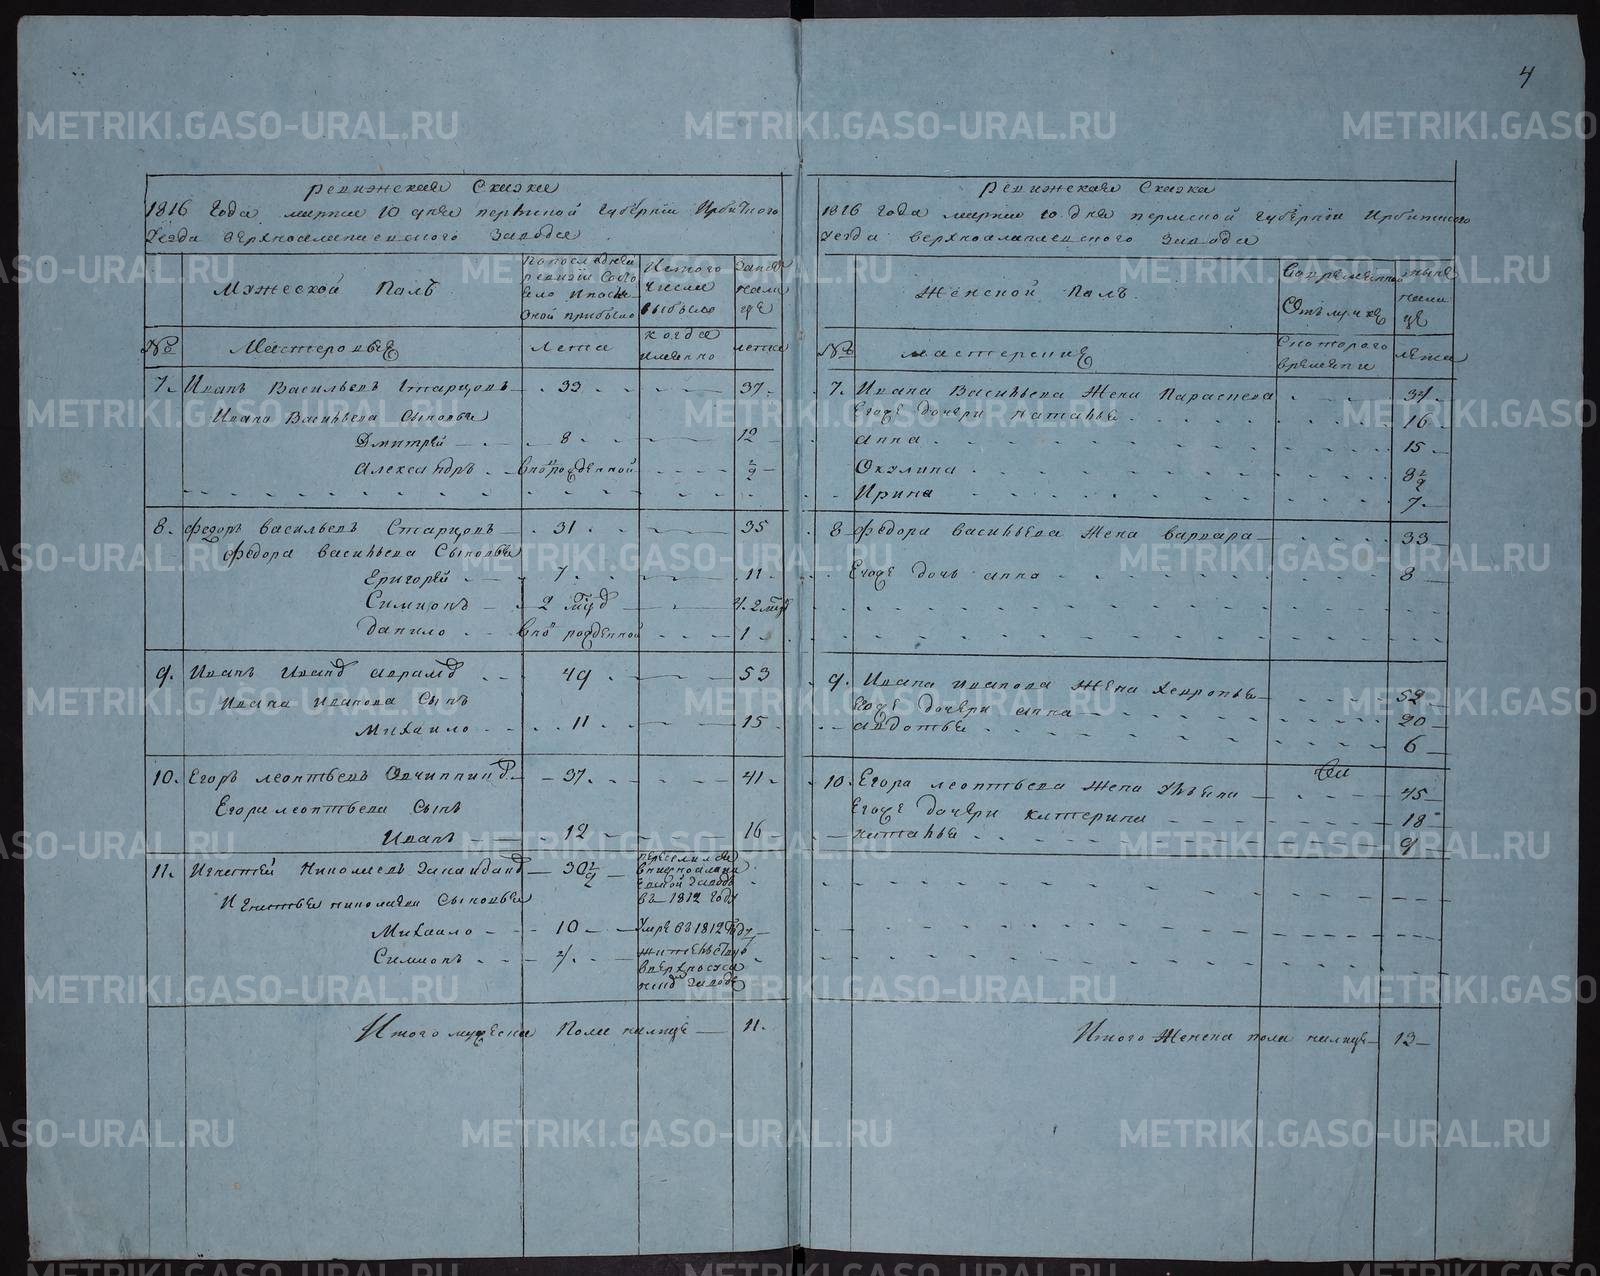 4
Ревижская Сказка
1816 года марта 10 дня пермской губернїи Ирбитского
Уезда верхнеалапаевского Завода
Мужеской Палъ
По последней ревизїи Состояло И после оной прибыло
Изтого числа выбыло
Занов нали це
№
Мастеровые
Лета
когда именно
лета
7. Иванъ Васильевъ Старцовъ 33 37
Ивана Васильева Сыновья
Дмитрей 8 12
Александръ в но рожденной 1/2
8. Федоръ Васильевъ Старцовъ 31 35
Федора Васильева Сыновья
Григорей 7 11
Симионъ 2 год 4. 2 год
Данило в но рожденной 1
9. Иванъ Иванов 49 53
Ивана Иванова Сынъ
Михаило 11 15
10. Егоръ леонтьевъ Овчинников 37 41
Егора леонтьева Сынъ
Иванъ 12 16
11. Игнатей Николаевъ 30 1/2 переселился в нижнеалапаевской заводъ въ 1812 году
Игнатья николаева Сыновья
Михаило 10 Умре въ 1812 году
Симионъ 4 жительство в верхнесусанском заводе
Итого мужеска Пола налице 11.
Ревижская Сказка
1816 года марта 10 дня пермской губернїи Ирбитского
уезда верхнеалапаевского завода
Женской Палъ
Во временной Отълучке
ныне нали це
№
мастерские
Скоторого времени
лета
7. Ивана Васильева Жена Параскева 34
Егоже дочери наталья 16
анна 15
Окулина 8 1/2
Ирина 7
8 Федора васильева Жена варвара 33
Егоже дочь анна 8
9. Ивана иванова Жена хевронья 52
Егоже дочери анна 20
авдотья 6
10. Егора леонтьева Жена Ульяна 45
Егоже дочери катерина 18
наталья 9
Итого Женска пола налице 13
METRIKI.GASO-URAL.RU